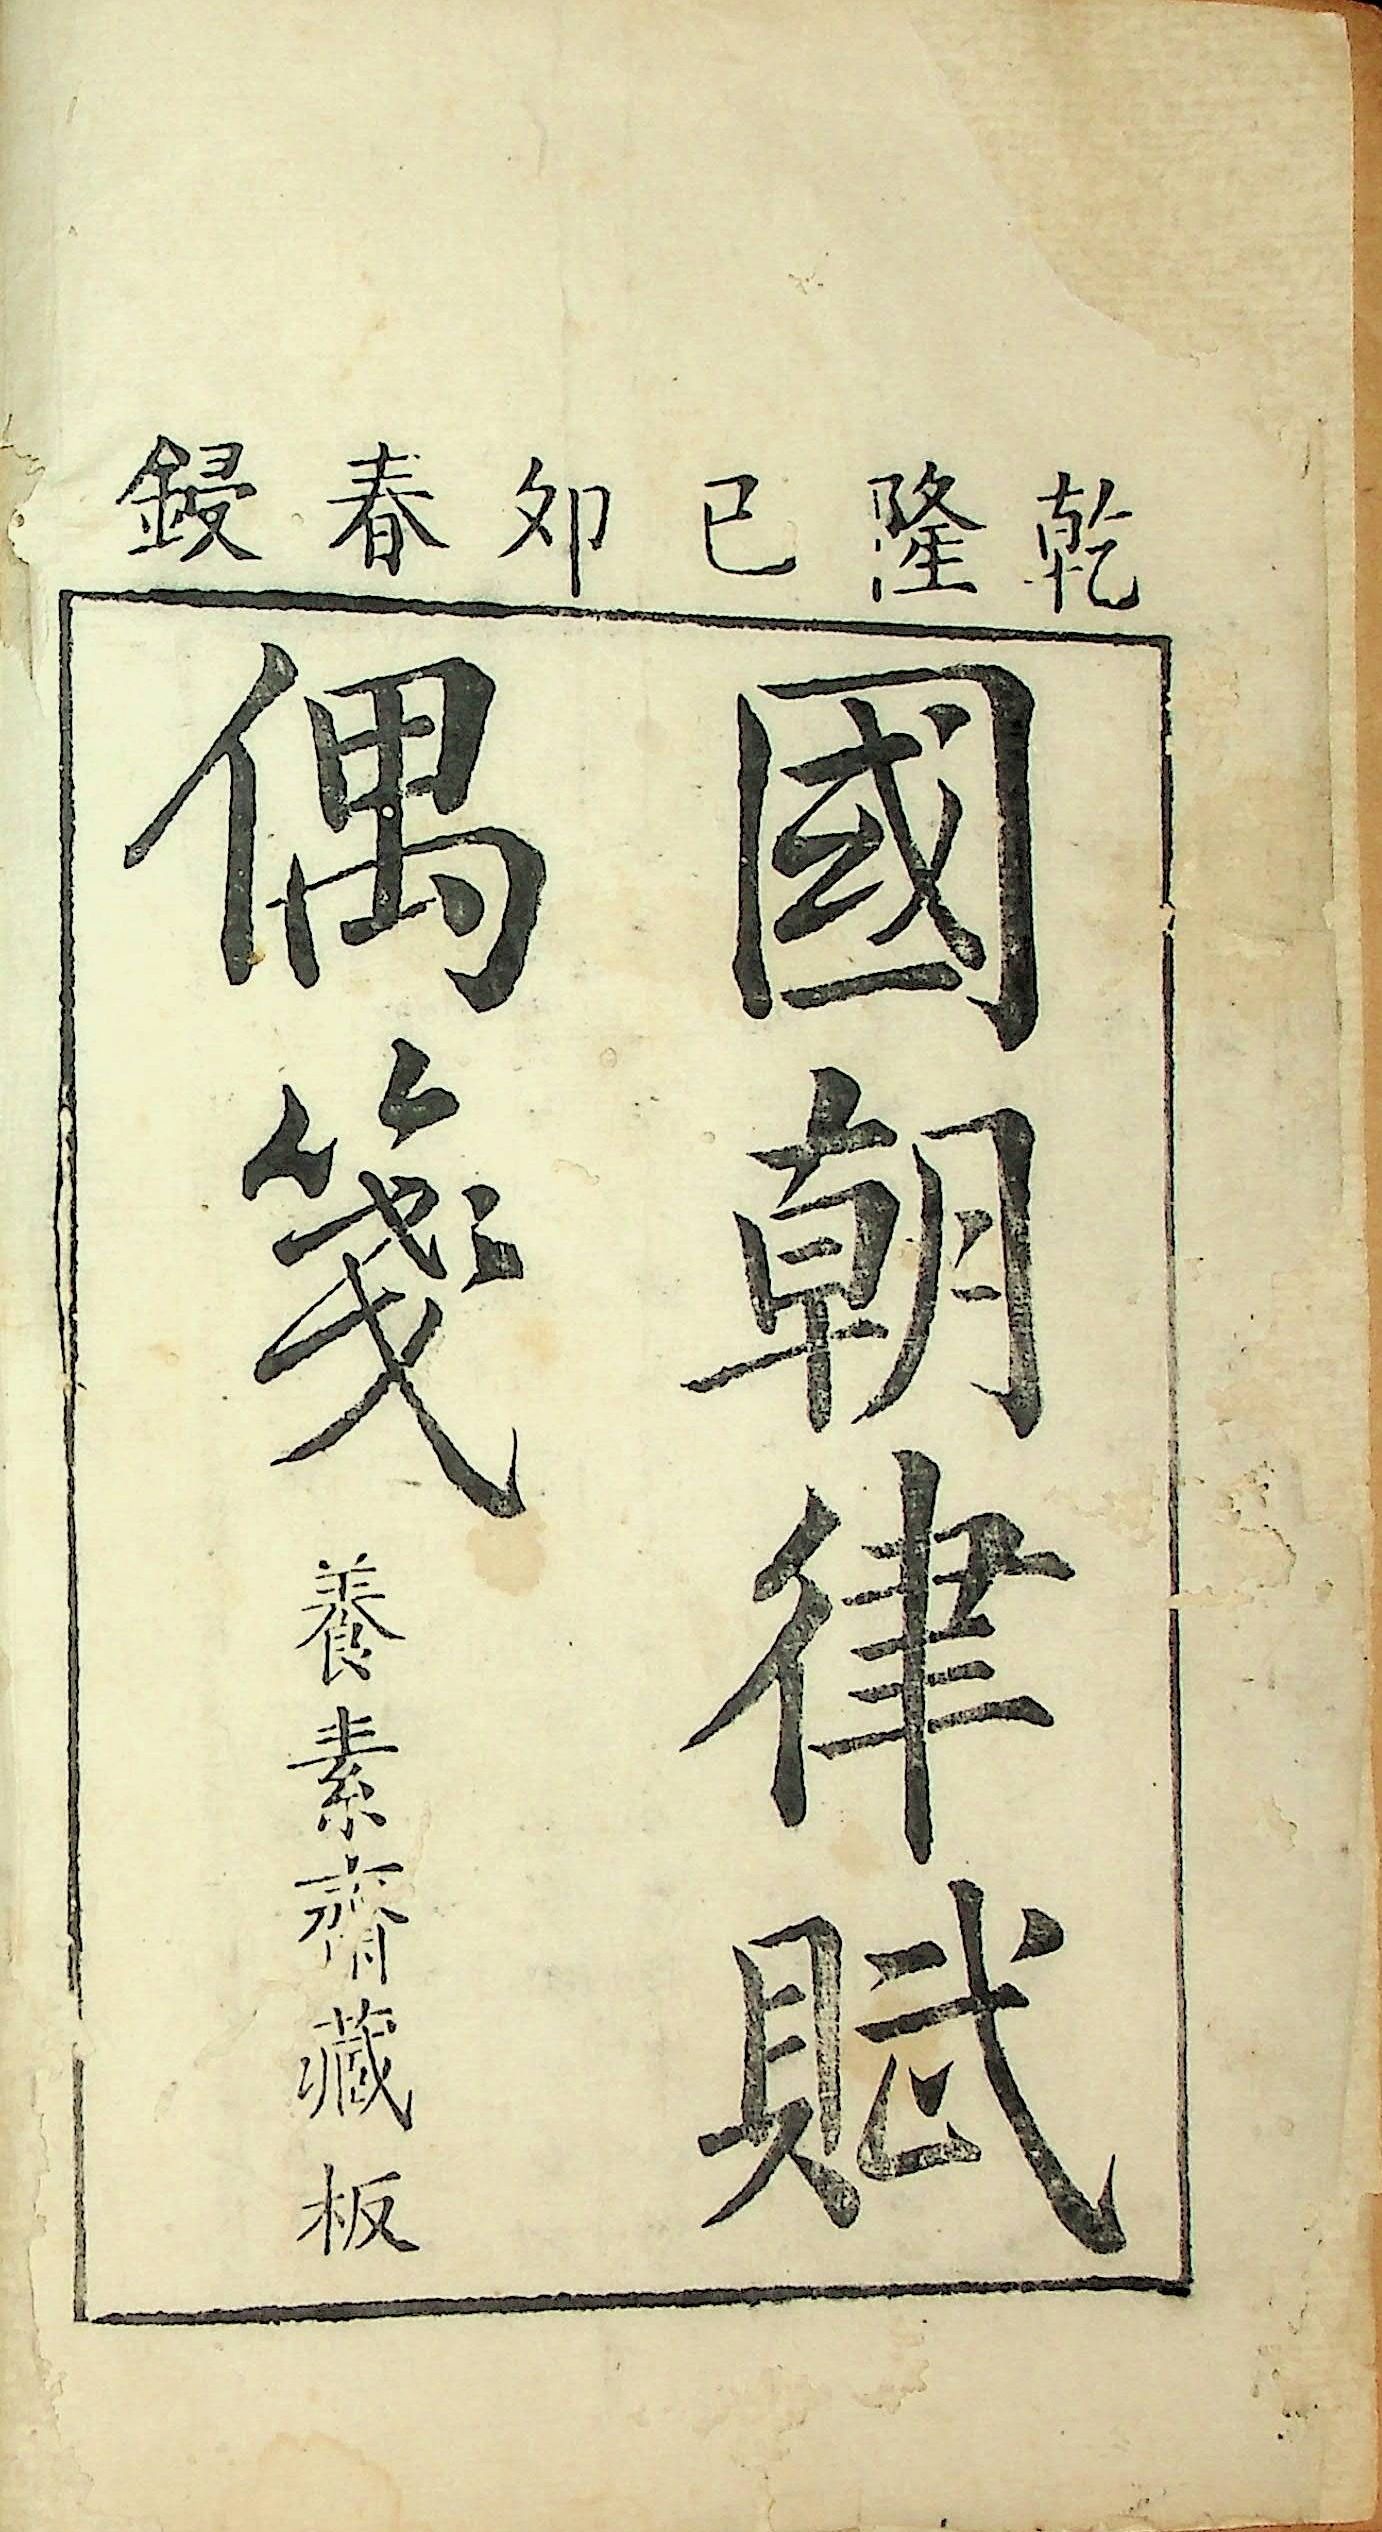 乾隆己卯春鋟
國朝律賦
偶箋
養素齋藏板